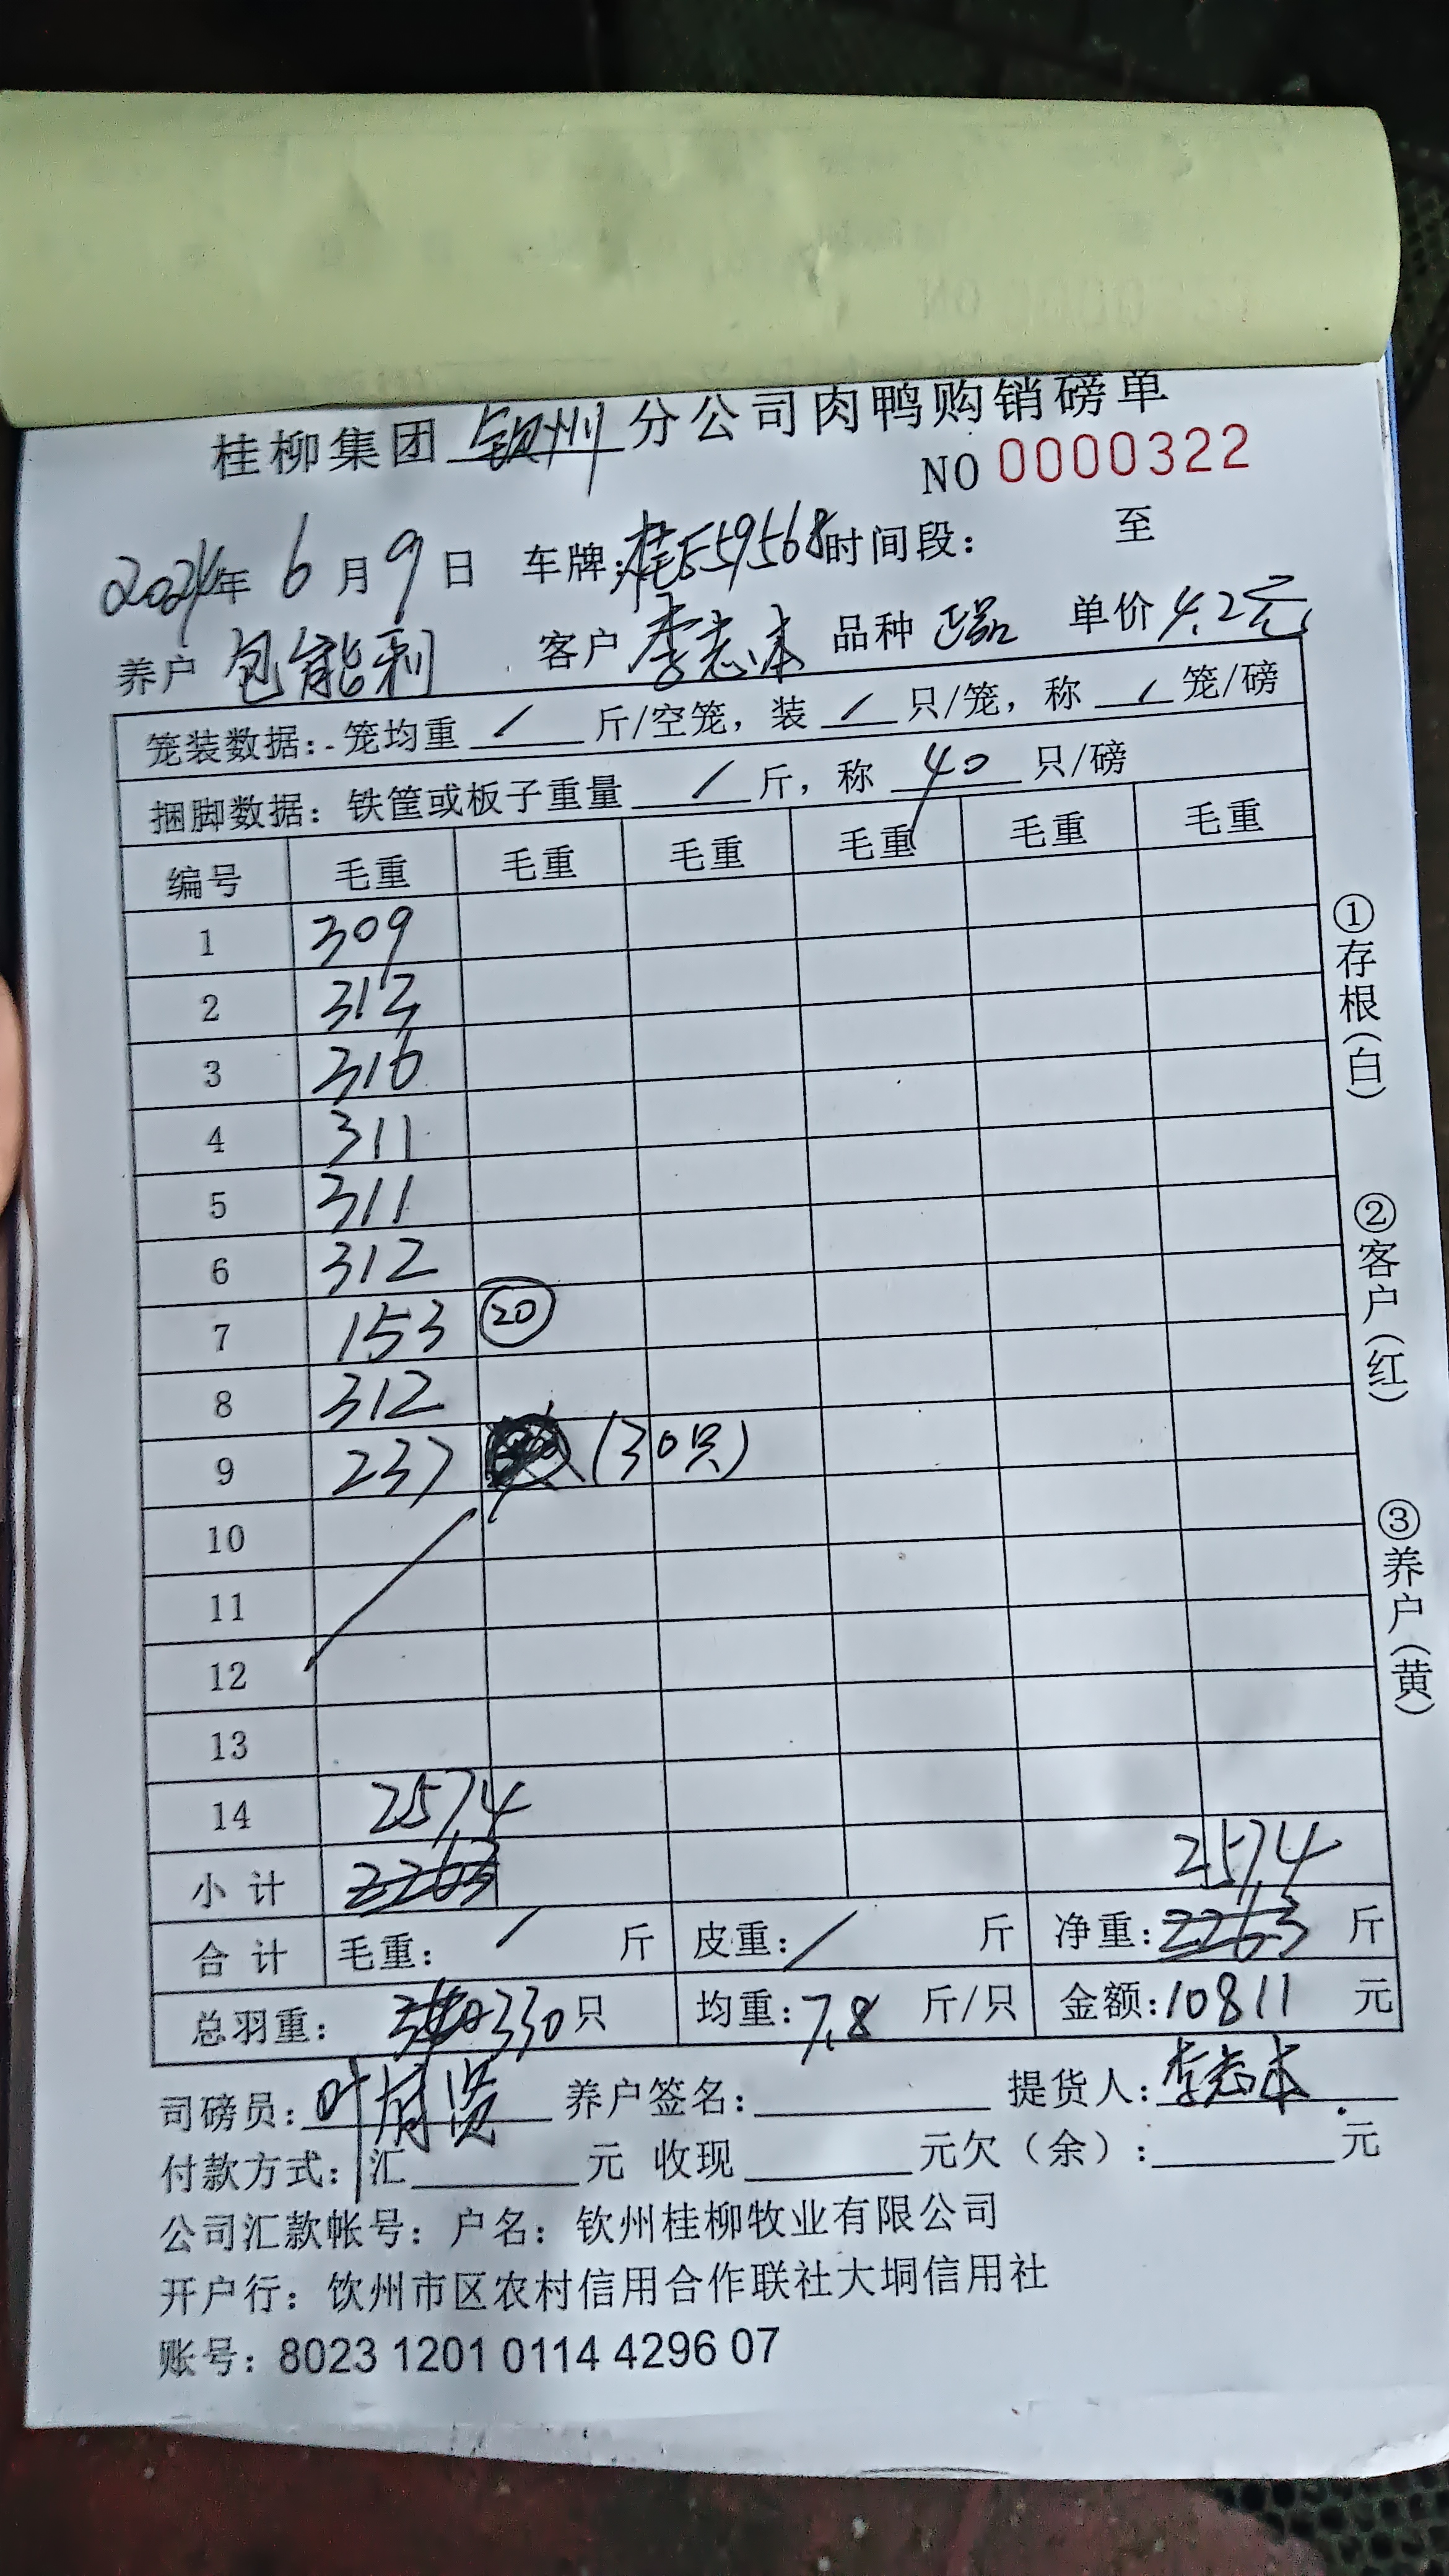 桂柳集团 钦州 分公司肉鸭购销磅单
NO 0000322
2024年 6月 9日 车牌:桂E59568 时间段: 至
养户 包能利 客户 李志本 品种 正品 单价 4.2元
笼装数据: 笼均重 / 斤/空笼，装 / 只/笼，称 / 笼/磅
捆脚数据: 铁筐或板子重量 / 斤，称 40 只/磅
编号 毛重 毛重 毛重 毛重 毛重 毛重
1 309
2 313
3 316
4 311
5 311
6 312
7 153 20
8 312
9 237 (30只)
10
11
12
13
14 2574
小计 2263 2574
合计 毛重: / 斤 皮重: / 斤 净重: 2263 斤
总羽重: 330只 均重: 7.8 斤/只 金额: 10811 元
司磅员: 叶 养户签名: 提货人: 李志本
付款方式: 汇 元 收现 元欠（余）: 元
公司汇款帐号: 户名: 钦州桂柳牧业有限公司
开户行: 钦州市区农村信用合作联社大垌信用社
账号: 8023 1201 0114 4296 07
①存根(白)
②客户(红)
③养户(黄)